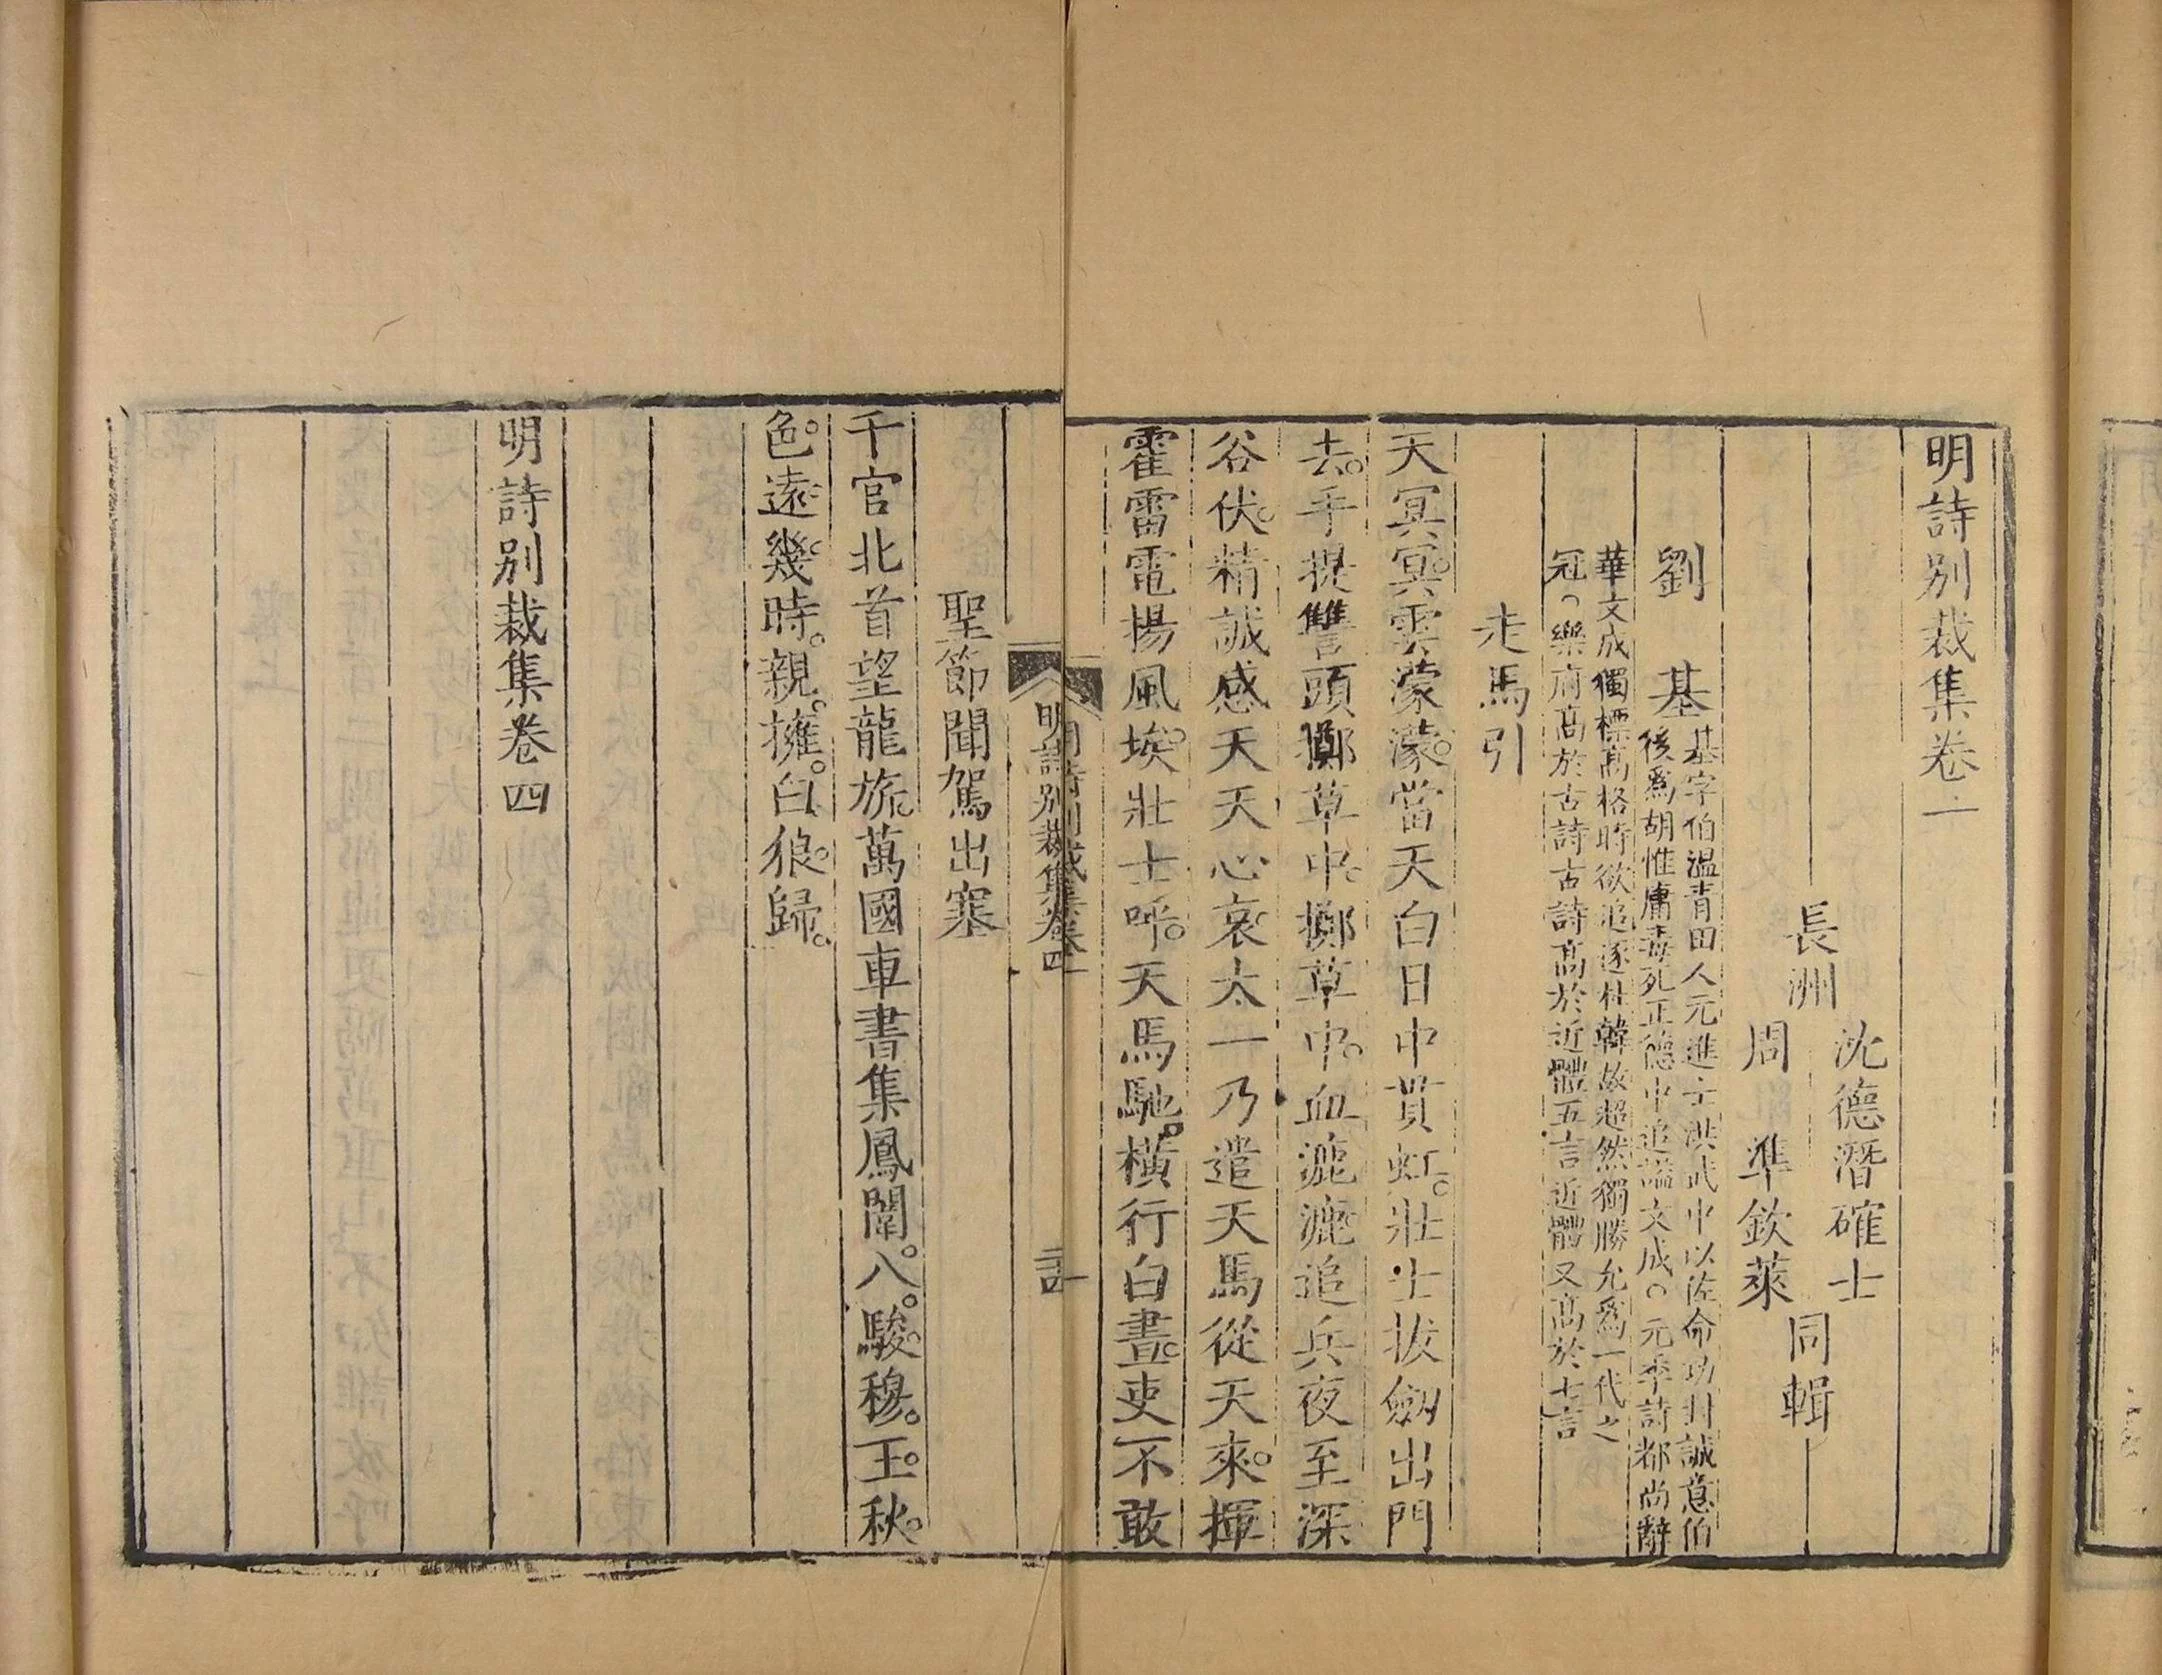 明詩别裁集卷一
長洲
沈德潛確士
周準欽萊
同輯
劉基
基字伯溫青田人元進士洪武中以佐命功封誠意伯
後爲胡惟庸毒死正德中追謚文成○元季詩都尚辭
華文成獨標高格時欲追逐杜韓故超然獨勝允爲一代之
冠○樂府高於古詩古詩高於近體五言近體又高於七言
走馬引
天冥冥。雲濛濛。當天白日中貫虹。壯士拔劒出門
去。手提讐頭擲草中。擲草中。血漉漉追兵夜至深
谷伏。精誠感天天心哀。太一乃遣天馬從天來。揮
霍雷電揚風埃。壯士呼。天馬馳。橫行白晝。吏不敢
明詩别裁集卷四
聖節聞駕出塞
千官北首望龍旂。萬國車書集鳳闈。八。駿。穆。王。秋。
色。遠。幾。時。親。擁。白。狼。歸。
明詩别裁集卷四